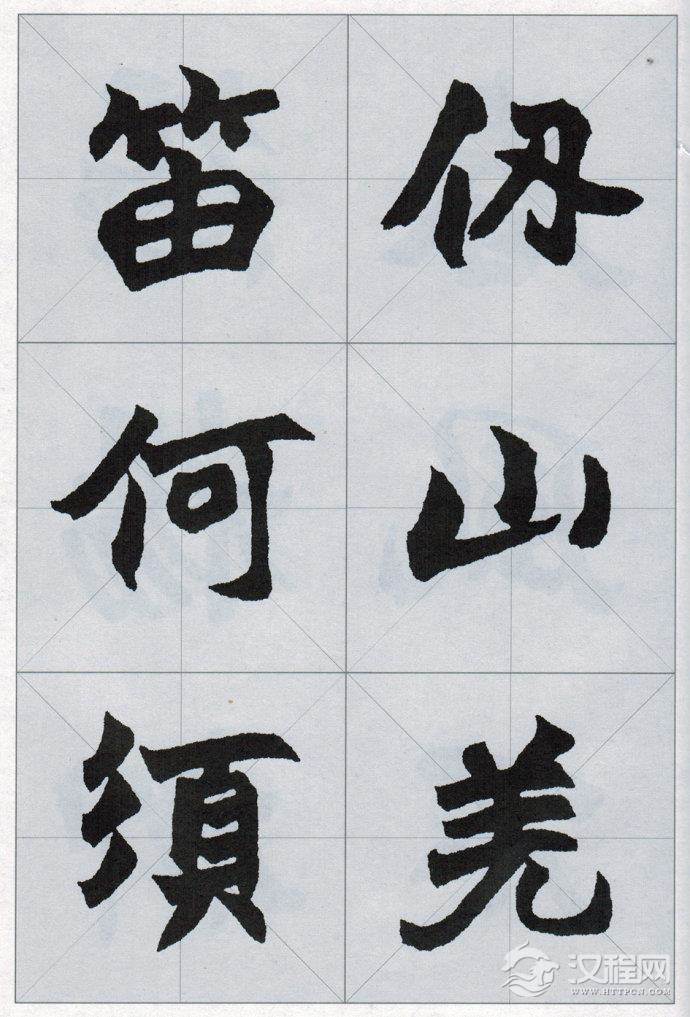 仭山羌
笛何須
汉程网
WWW.HTTPCN.COM